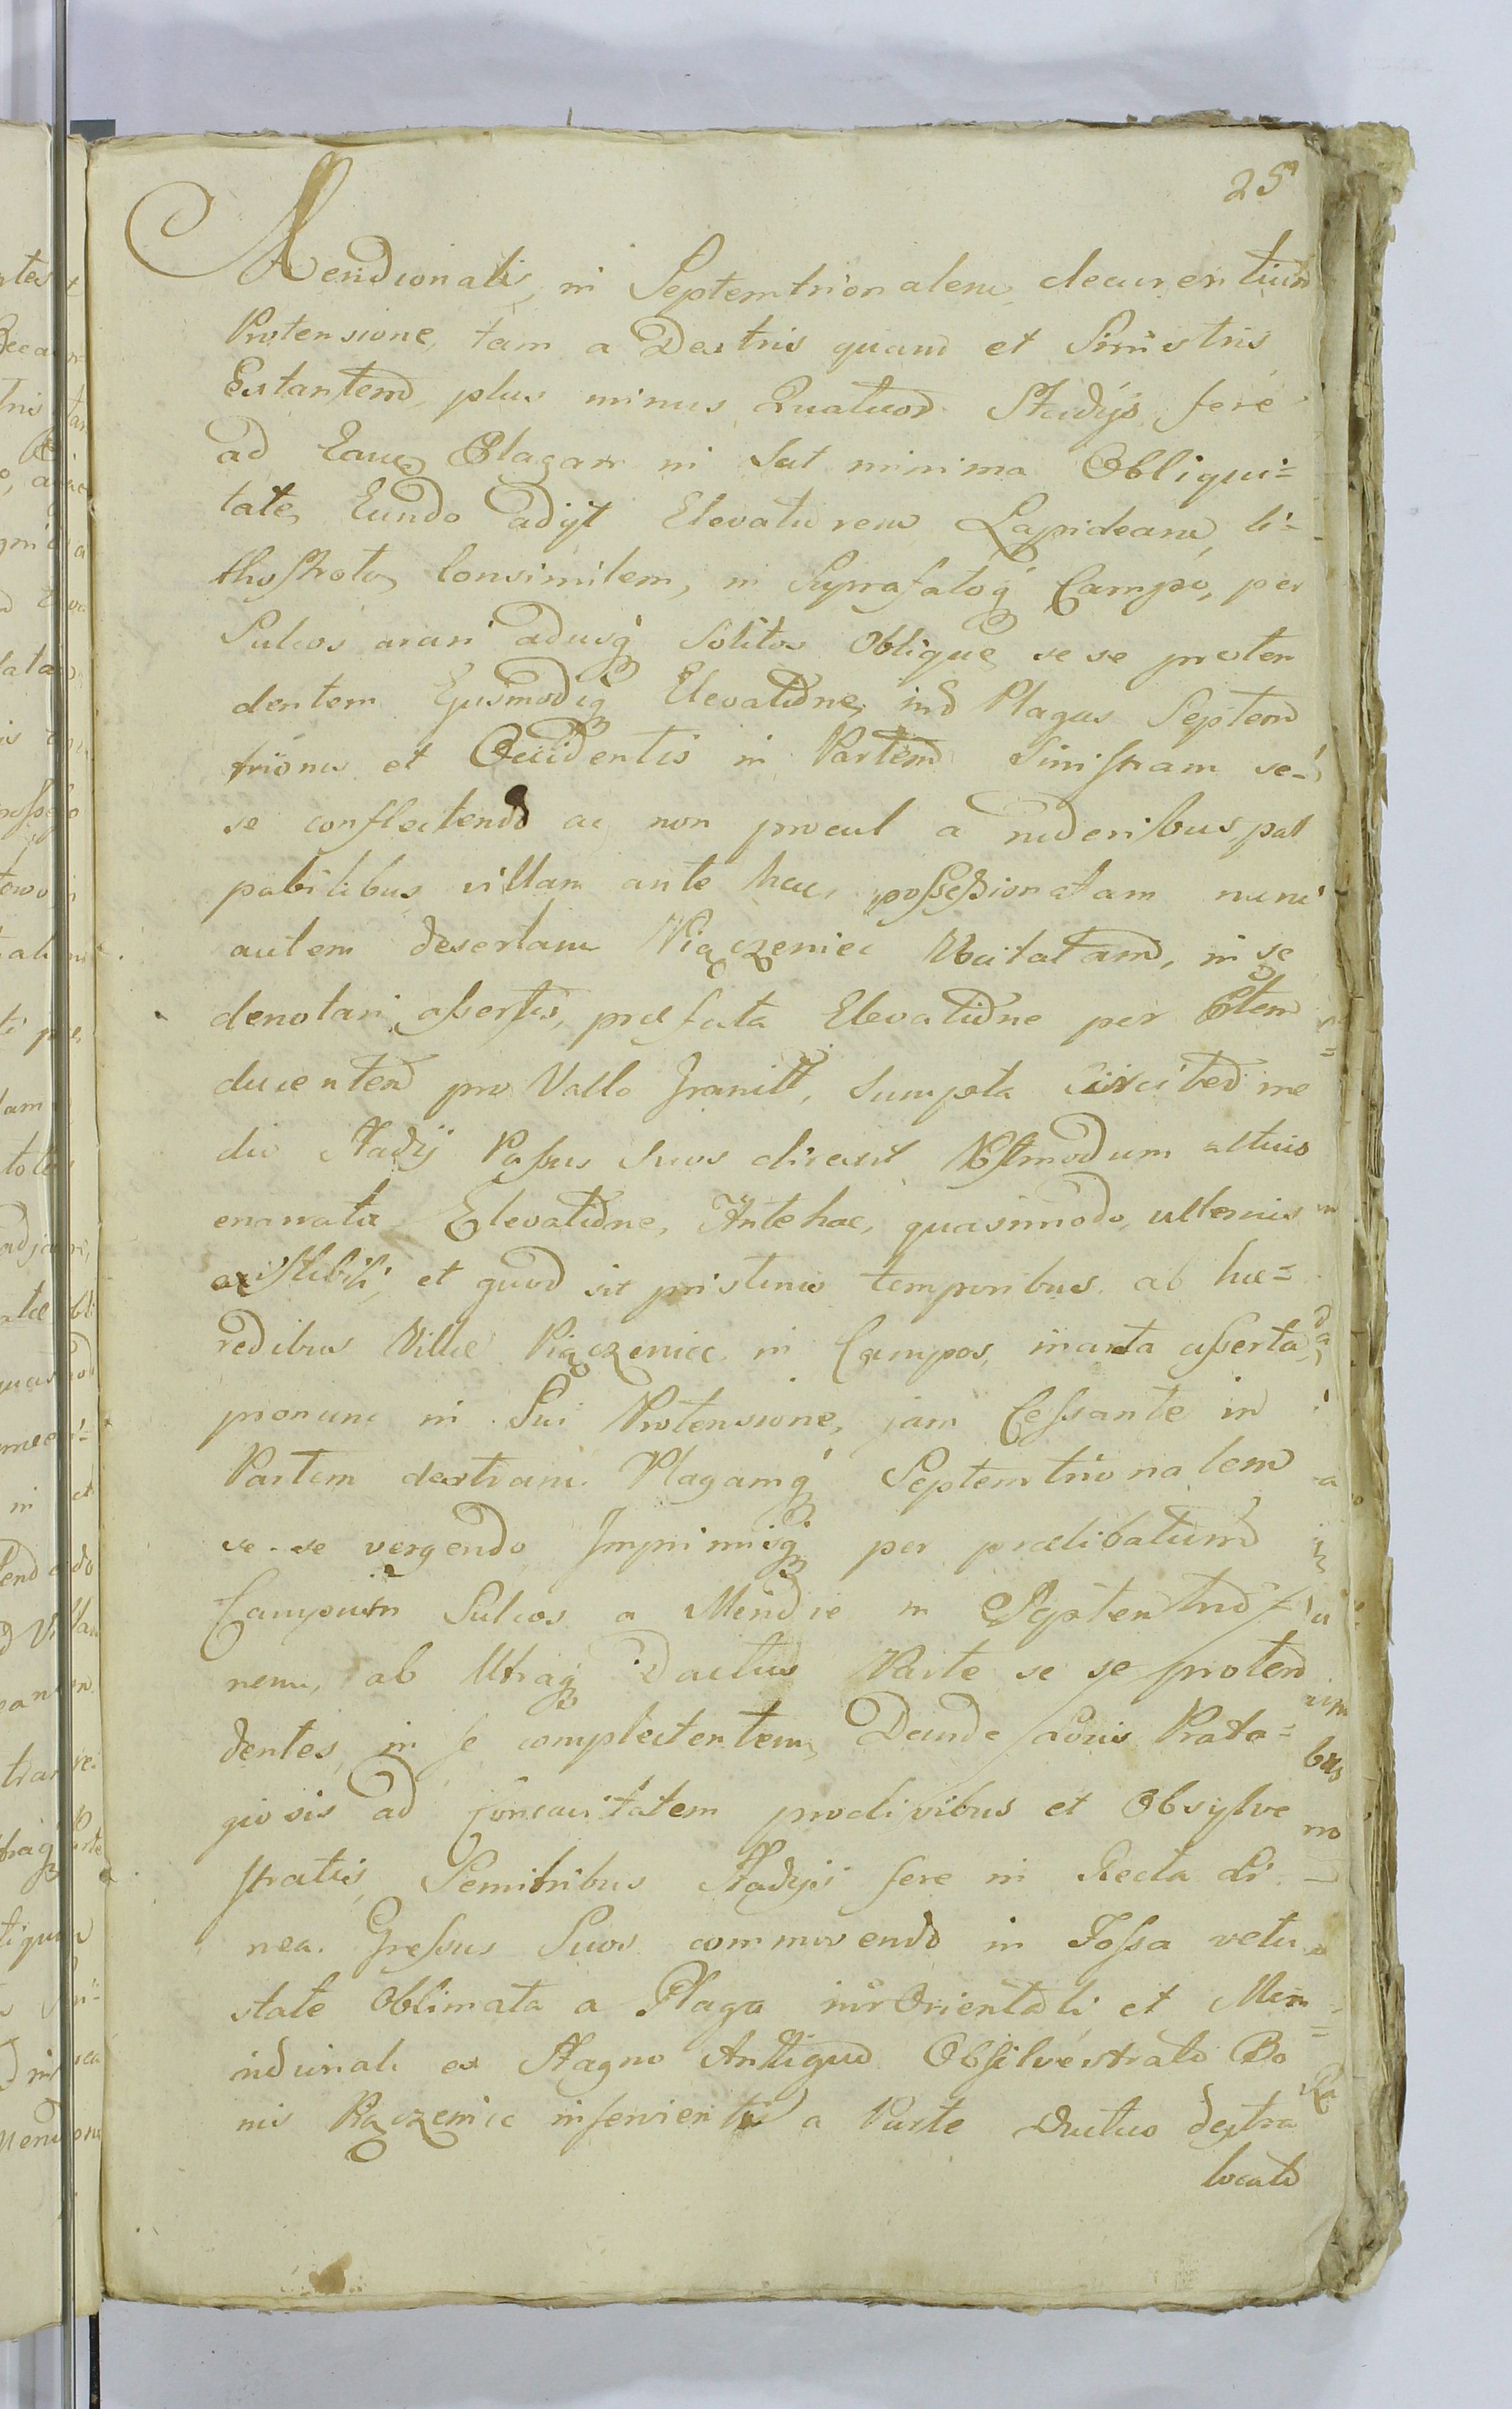 25
Meridionalis, in Septemtrionalem decurentium
Protensione, tam a Dextris quam et Sinistris
Extantem, plus minus Quatuor Stadijs fere
ad Eam Plagam in Sat minima Obliqui=
tate, Eundo adijt Elevaturem Lapideam, li=
thostroto consimilem, in Suprafatoq Campo, per
Sulcos arari adusq Solitos Oblique se se proten
dentem Ejusmodiq Elevatione, in Plagas Septem
trionis et Occidentis in Partem Sinistram se-
se conflectendo ac non procul a ruderibus, pal
pabilibus villam ante hac, possessionatam nunc
autem desertam Piączeniec Vocitatam, in se
denotari assertis, præfata Elevatione per
ducentem pro Vallo Granitt, Sumpta circiter me
dio Stadij Passus Suos direxit altius
enarrata Elevatione, Antehac, quasimodo, ulterius
existibili, et quod sit pristinis temporibus ab hæ=
redibus Villæ Piączeniec in Campos, inarata asserta,
pronunc in Sui Protensione, jam Cessante in
Partem dextram Plagamq Septemtrionalem
se-se vergendo Imprimisq per prælibatum
Campum Sulcos a Meridie in Septentrio
nem, ab Utraq Ductus Parte se se proten
dentes, in se complectentem, Deinde Locis Prata=
giosis ad Concavitatem proclivibus et Obsylve
stratis, Semitribus Stadijs fere in Recta Li
nea. Gressus Suos commovendo in Fossa vetu
state Oblimata a Plaga Orientali et Me
ridionali ex Stagno Antiquo Obsilvestrato Bo
nis Piączeniec inservienti a Parte Ductus dextra
locato